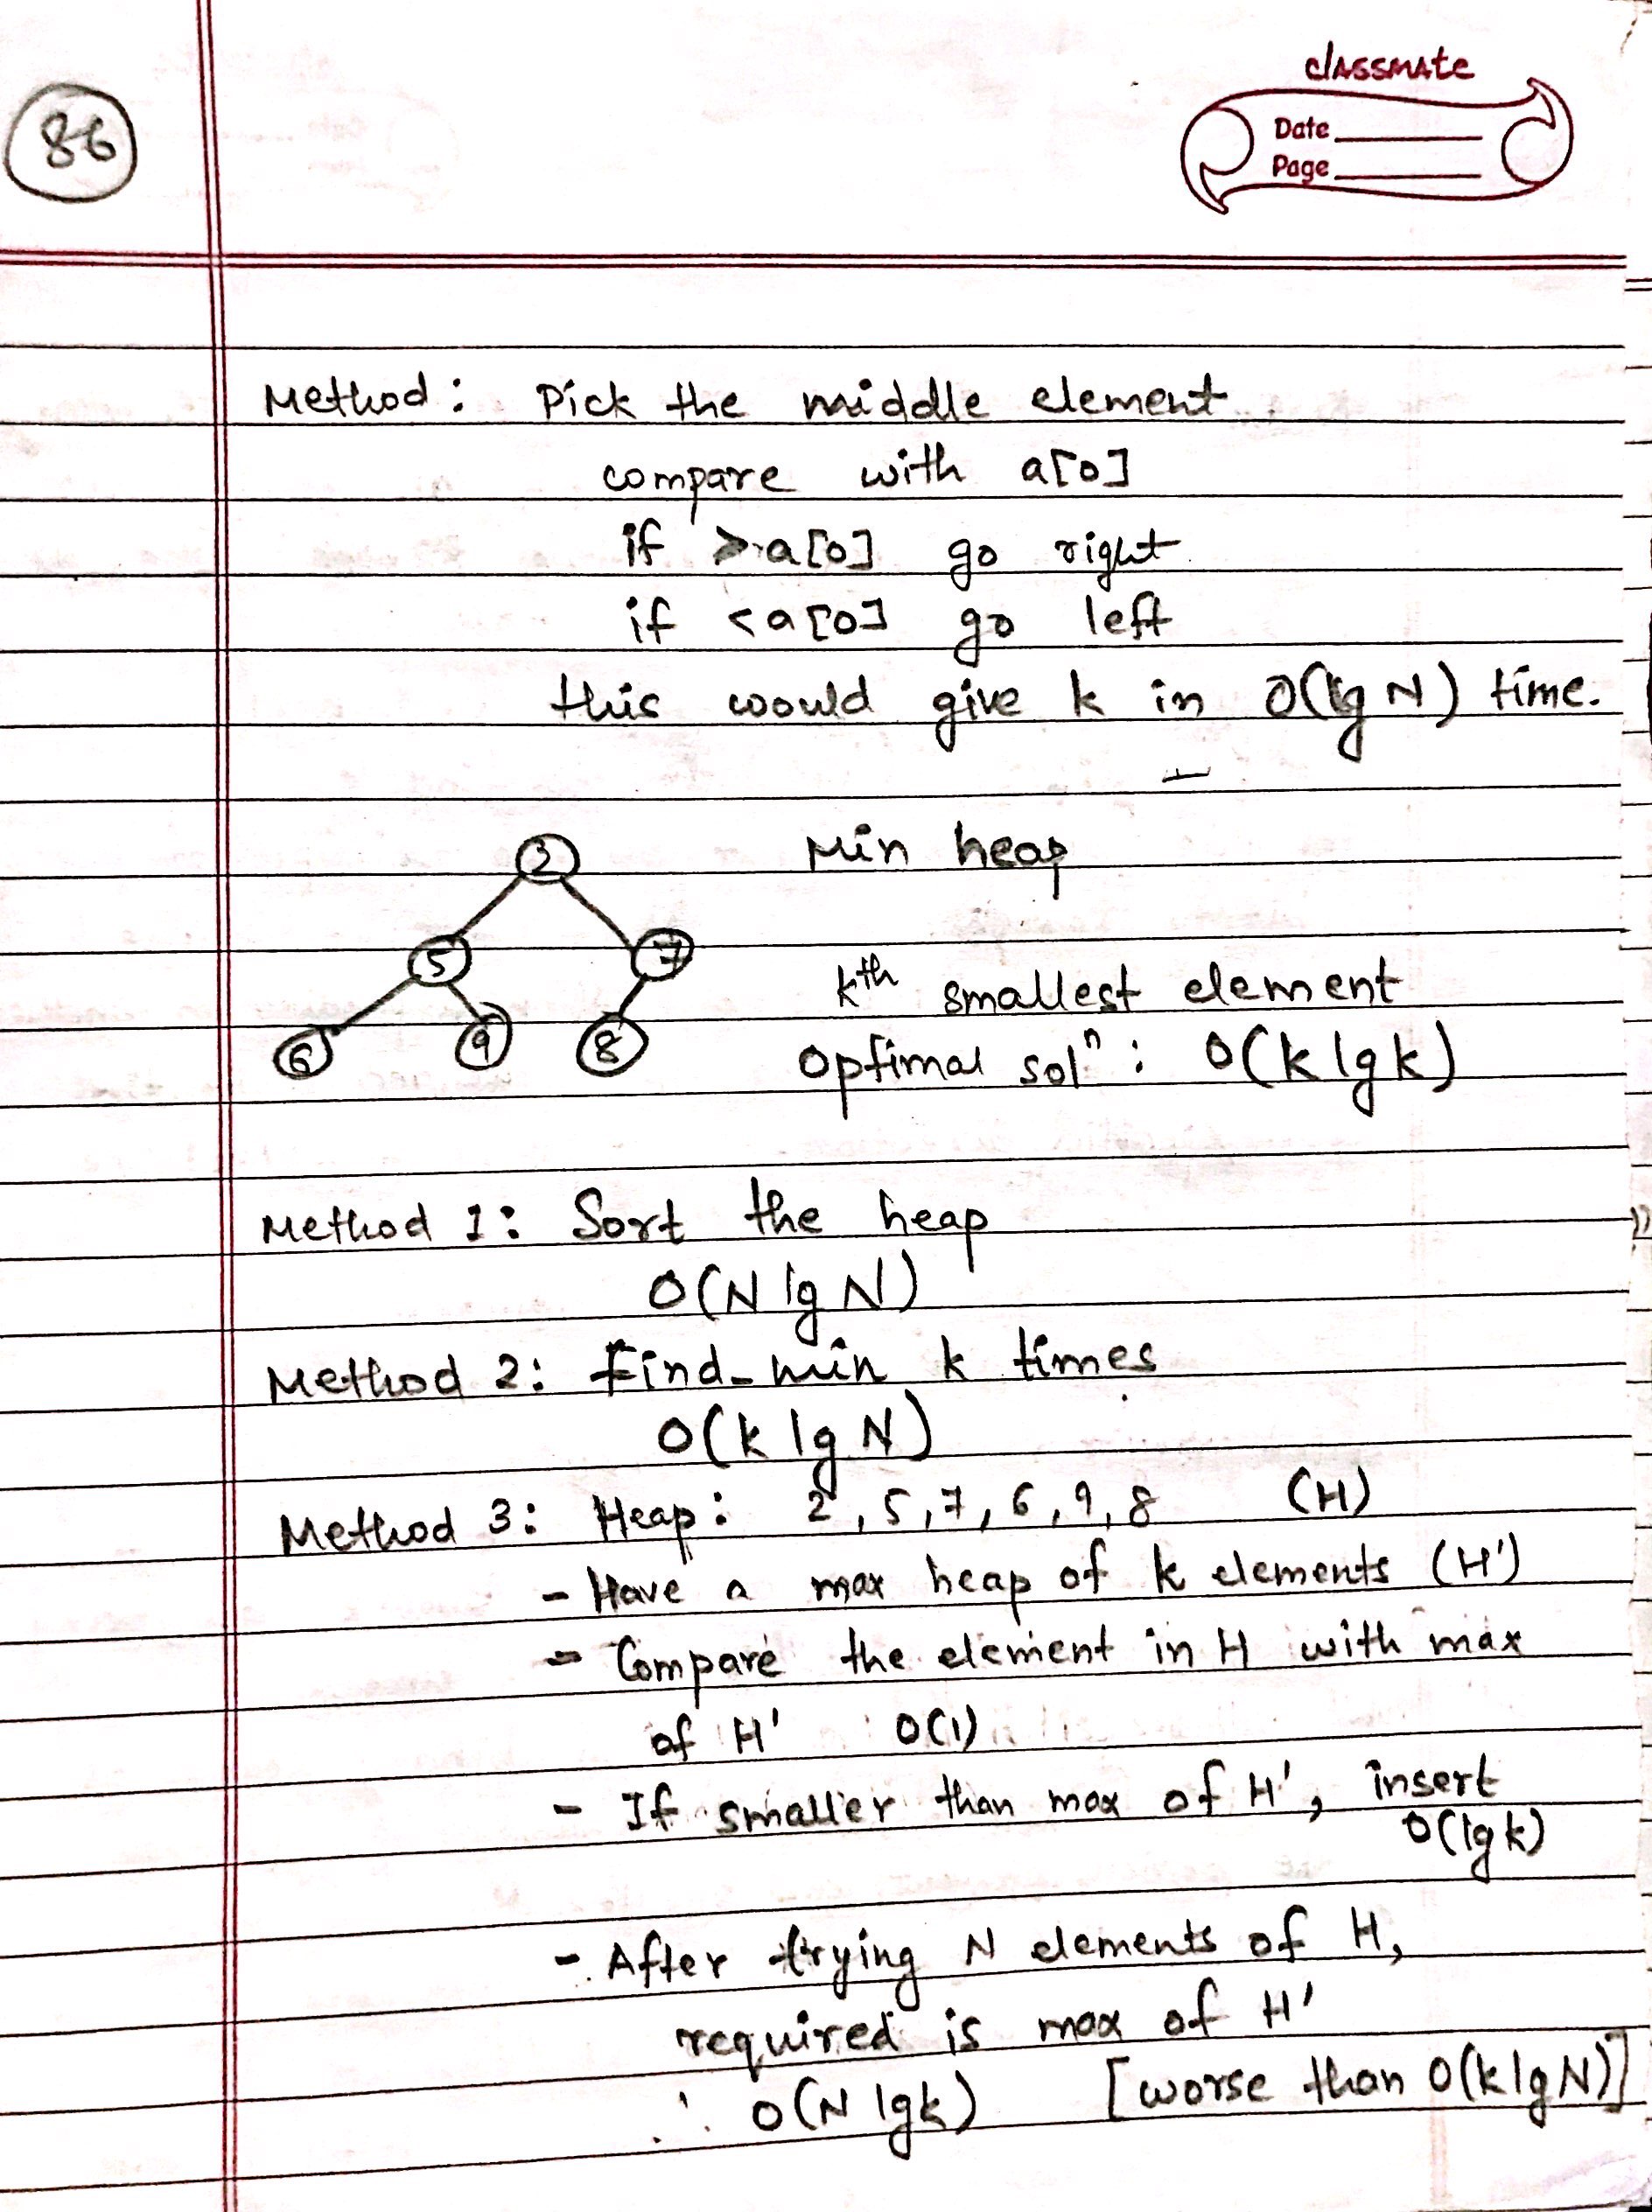 86
classmate
Date
Page
Method: Pick the middle element
compare with a[0]
if > a[0] go right
if < a[0] go left
this would give k in O(lg N) time.
Min heap
2
5
7
6
9
8
kth smallest element
Optimal solⁿ: O(k lg k)
Method 1: Sort the heap
O(N lg N)
Method 2: Find-min k times
O(k lg N)
Method 3: Heap: 2, 5, 7, 6, 9, 8 (H)
- Have a max heap of k elements (H')
- Compare the element in H with max
of H' O(1)
- If smaller than max of H', insert
O(lg k)
- After trying N elements of H,
required is max of H'
∴ O(N lg k) [worse than O(k lg N)]